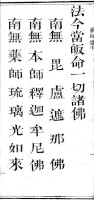 法今當皈命一切諸佛
南無毘盧遮那佛
南無本師釋迦牟尼佛
南無藥師琉璃光如來